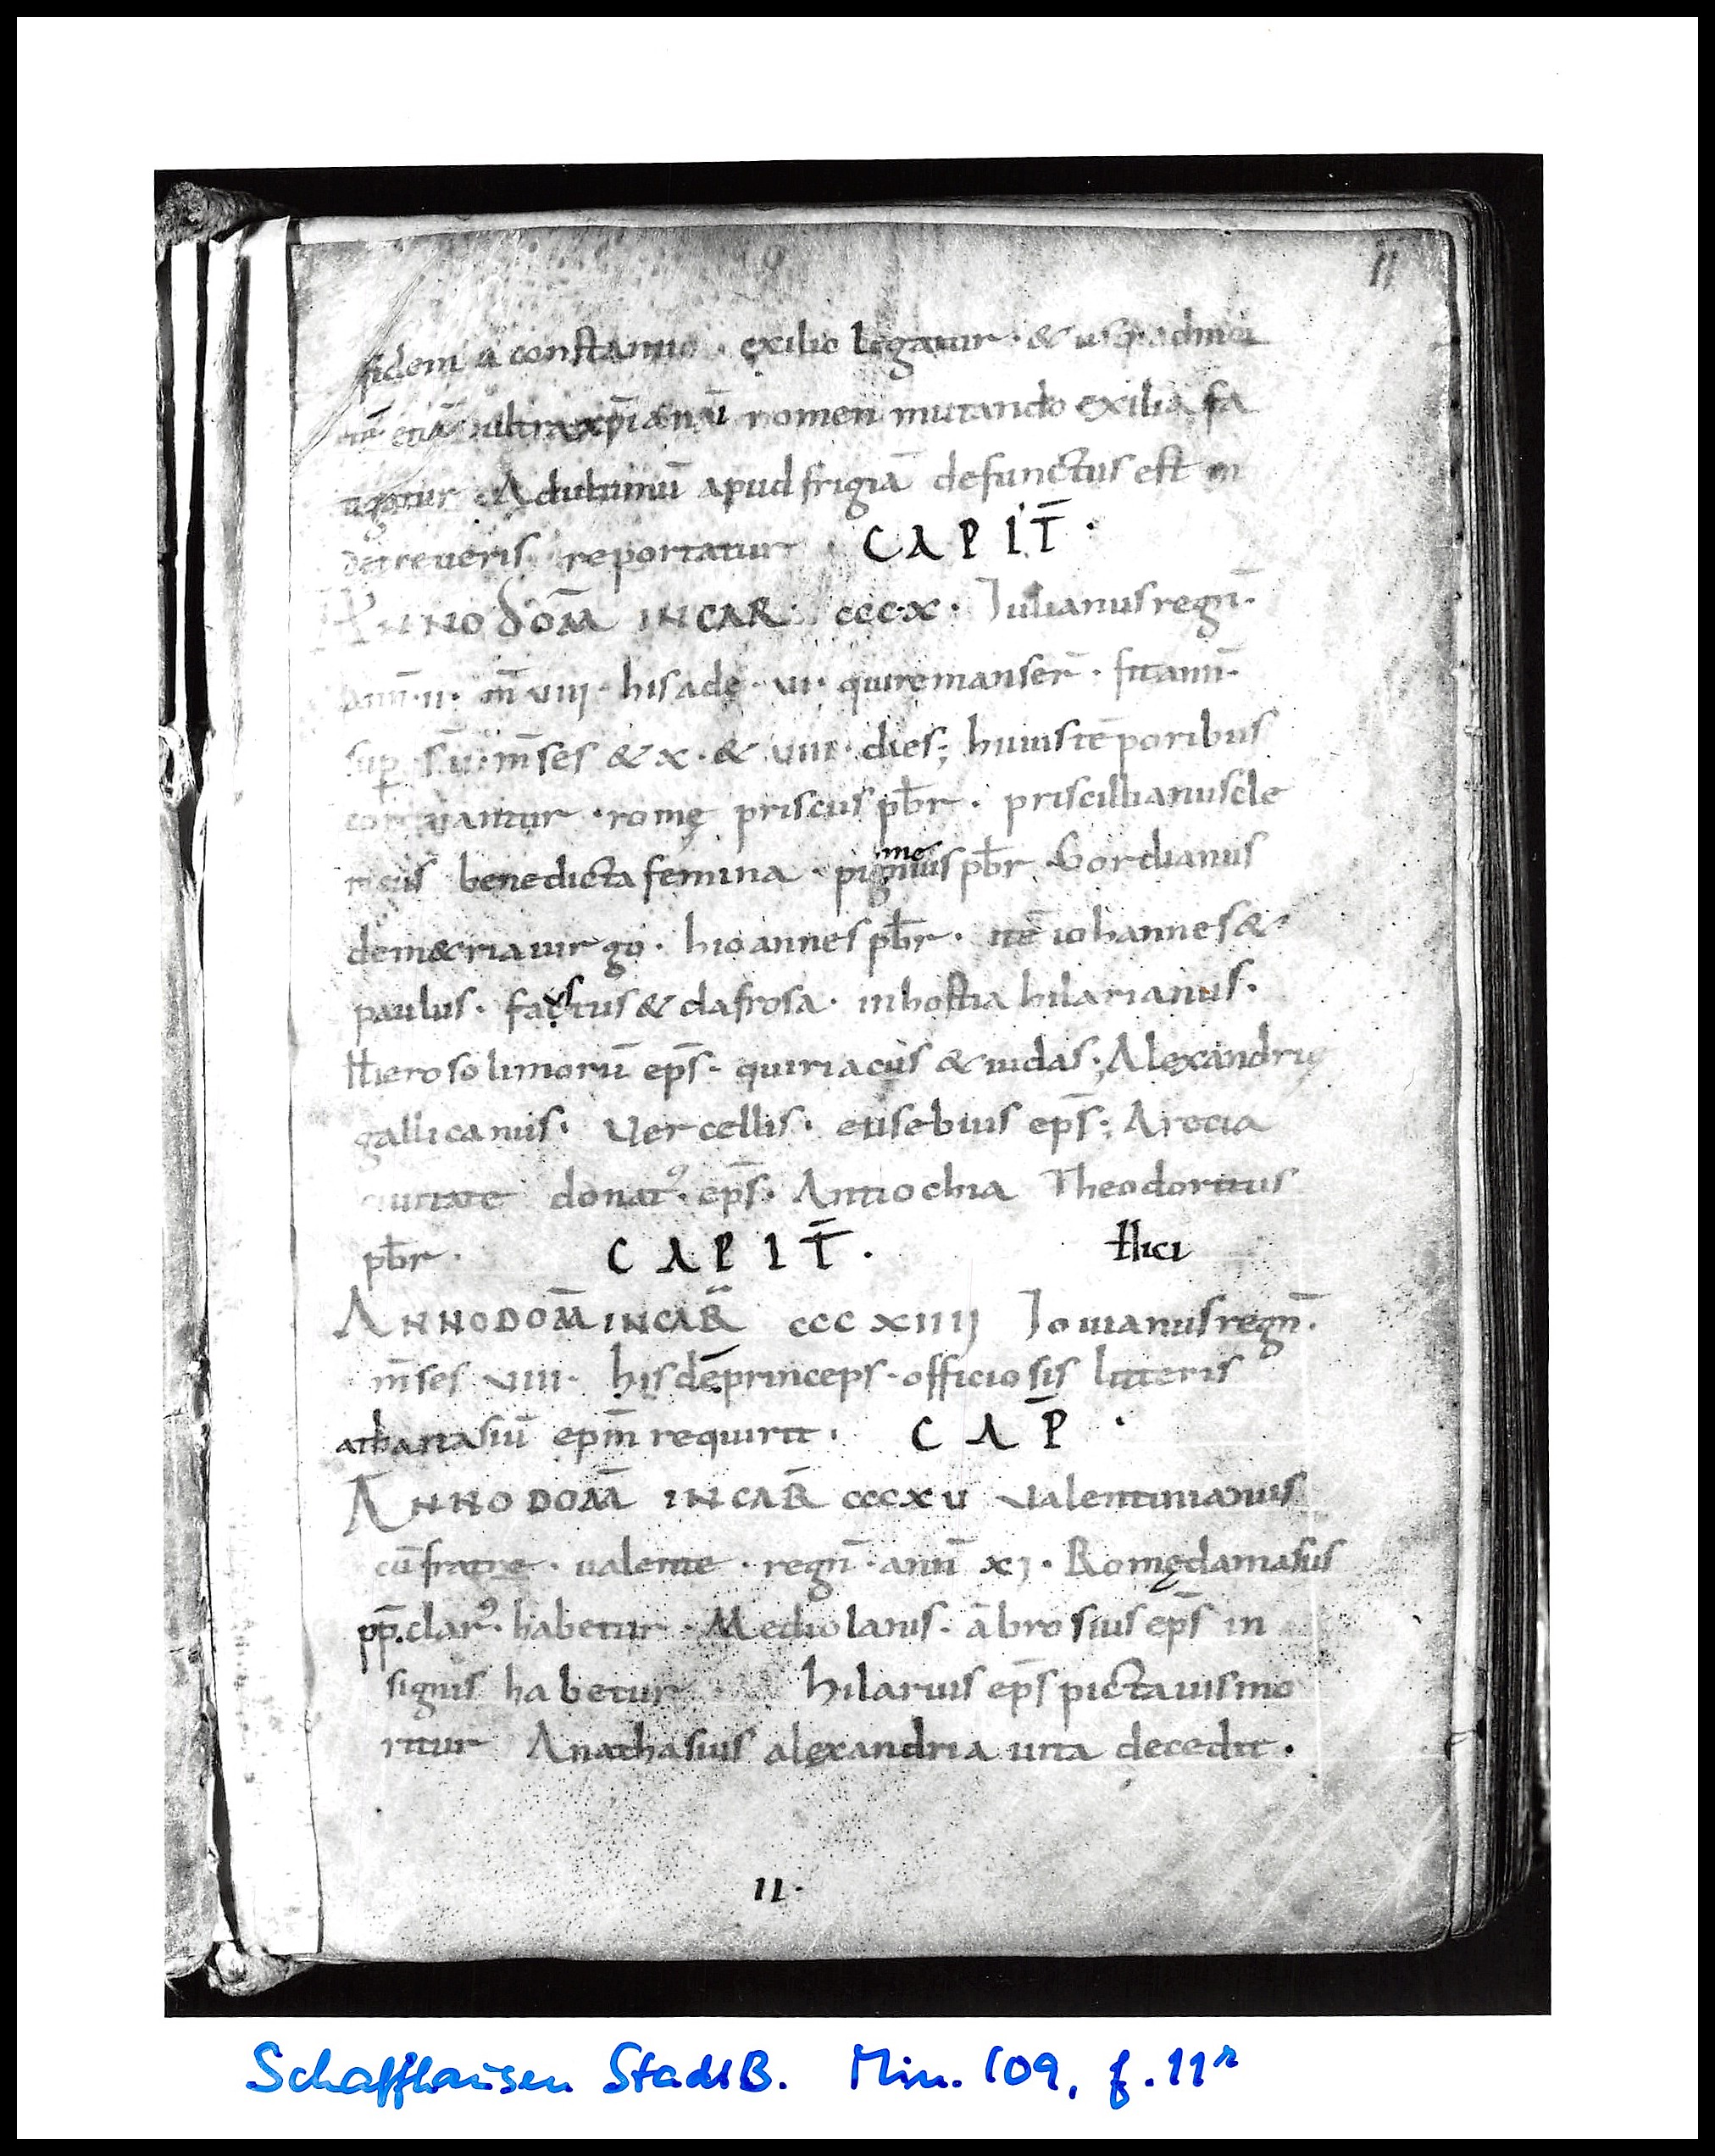 11
fidem a constantio · exilio legatur · & usq· ad mor
tē etiā ultra xpianū nomen mutando exilia fa
tigatur Ad ultimū apud frigiā defunctus est in
dei reueris reportatur · CAPIT̄ ·
ANNO DOM̄ INCAR · cccx · Iulianus regn̄ ·
ann̄ · ii · m̄ viii · his ade · vi · qui remanser̄ · fit ann̄ ·
sup m̄ses & x · & viii · dies ; huius tēporibus
coronantur · romę priscus pb̄r · priscillianus cle
ricus benedicta femina · pigmenius pb̄r Gordianus
dem&ria uirgo · hioannes pb̄r · itē iohannes &
paulus · faustus & dafrosa · in hostia hilarianus ·
Hierosolimorū ep̄s · quiriacus & iudas ; Alexandrię
gallicanus · Vercellis · eusebius ep̄s ; Arecia
ciuitate donat⁹ · ep̄s · Antiochia Theodoritus
pb̄r · CAPIT̄ · Hici
ANNO DOM̄ INCAR̄ cccxiiij Iouianus regn̄ ·
m̄ses viiii · hisdē princeps · officiosis litteris
athanasiū ep̄m requirit · CAP̄ ·
ANNO DOM̄ INCAR̄ cccxv valentinianus
cū fratre · ualente · regn̄ · ann̄ xj · Romę damasus
pp̄ · clar⁹ · habetur · Mediolanis · ābrosius ep̄s in
signis habetur hilarius ep̄s pictauis mo
ritur Anathasius alexandria uita decedit ·
11 ·
Schaffhausen StadtB. Min. 109, f. 11ʳ